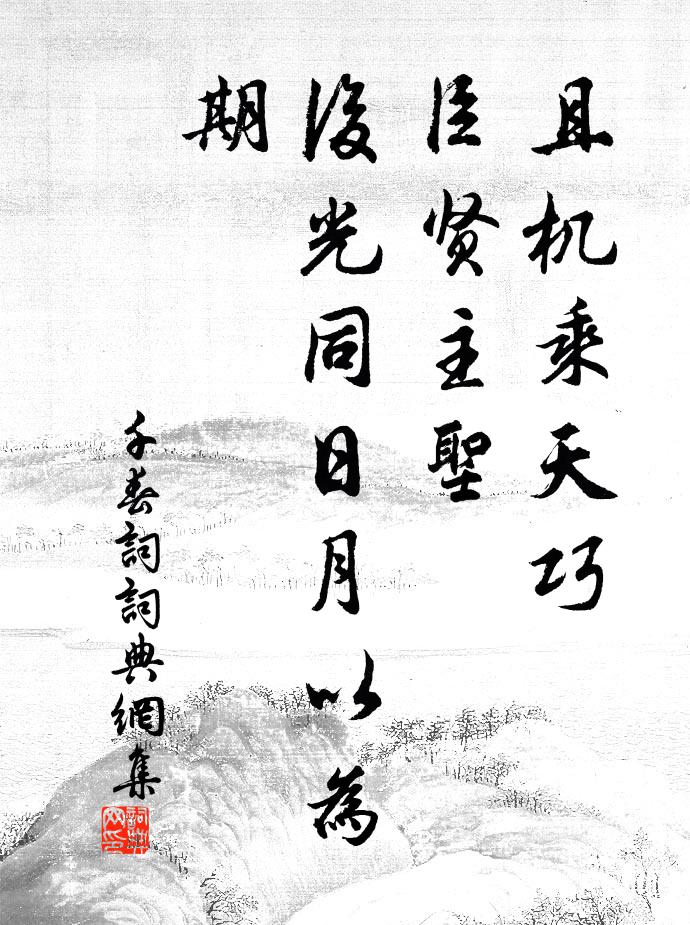 且机乘天巧
臣贤主聖
後光同日月以為
期
千春詞詞典網集
詞典
网印